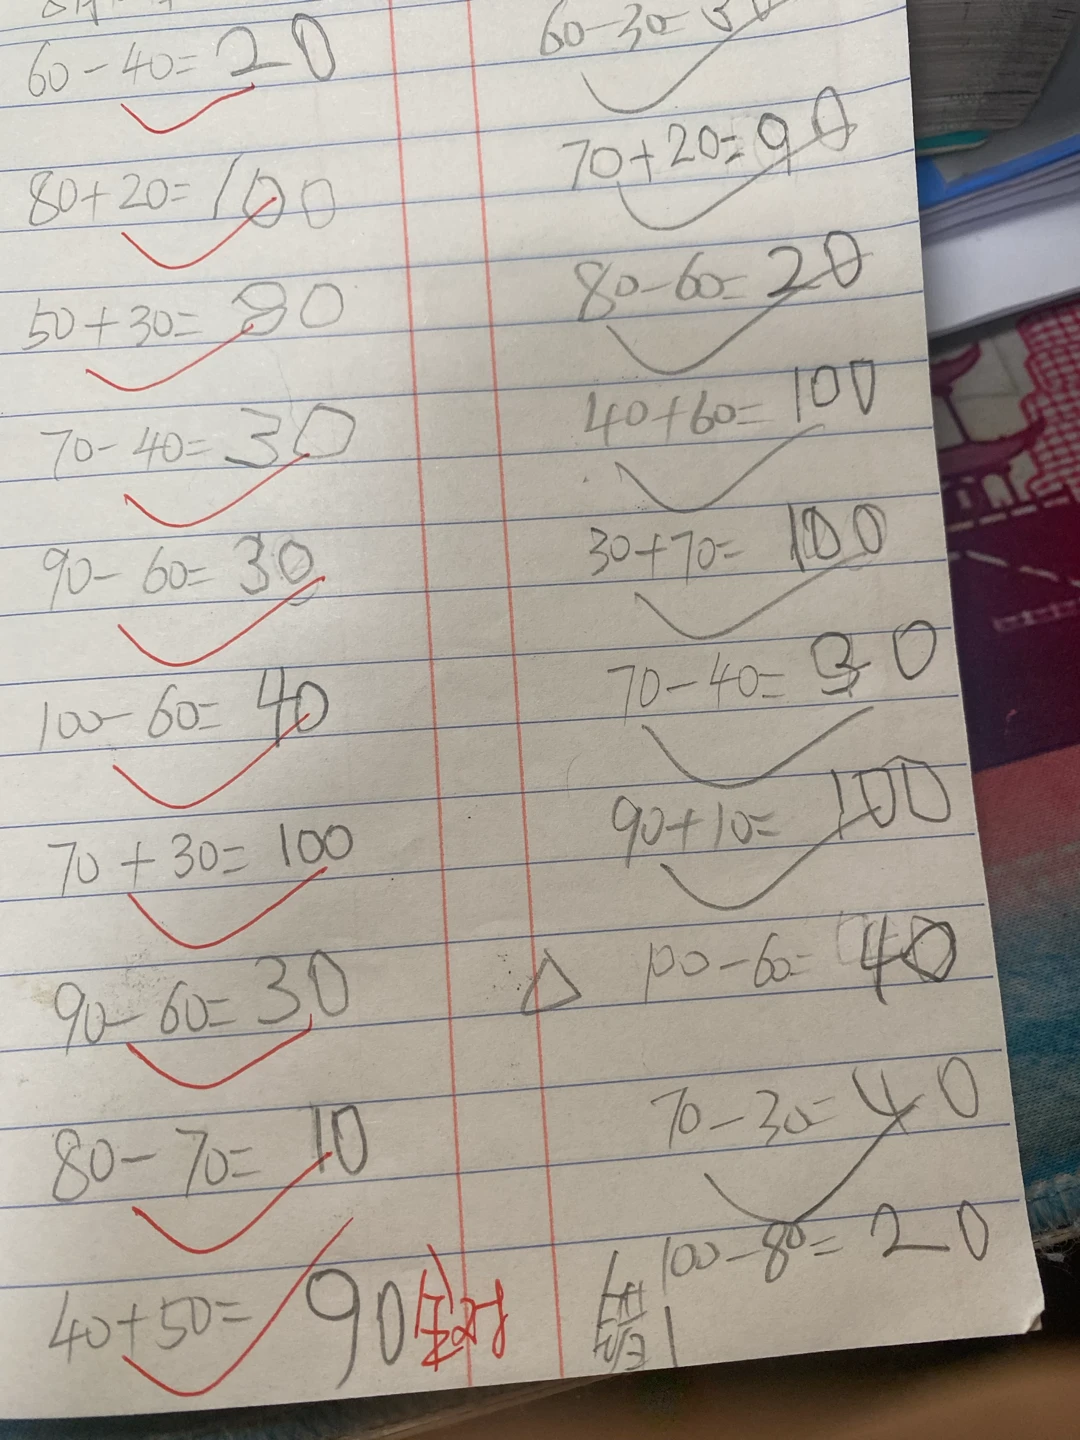 60-40=20
80+20=100
50+30=80
70-40=30
90-60=30
100-60=40
70+30=100
90-60=30
80-70=10
40+50=90
全对
60-30=30
70+20=90
80-60=20
40+60=100
30+70=100
70-40=30
90+10=100
△ 100-60=40
70-30=40
100-80=20
错1